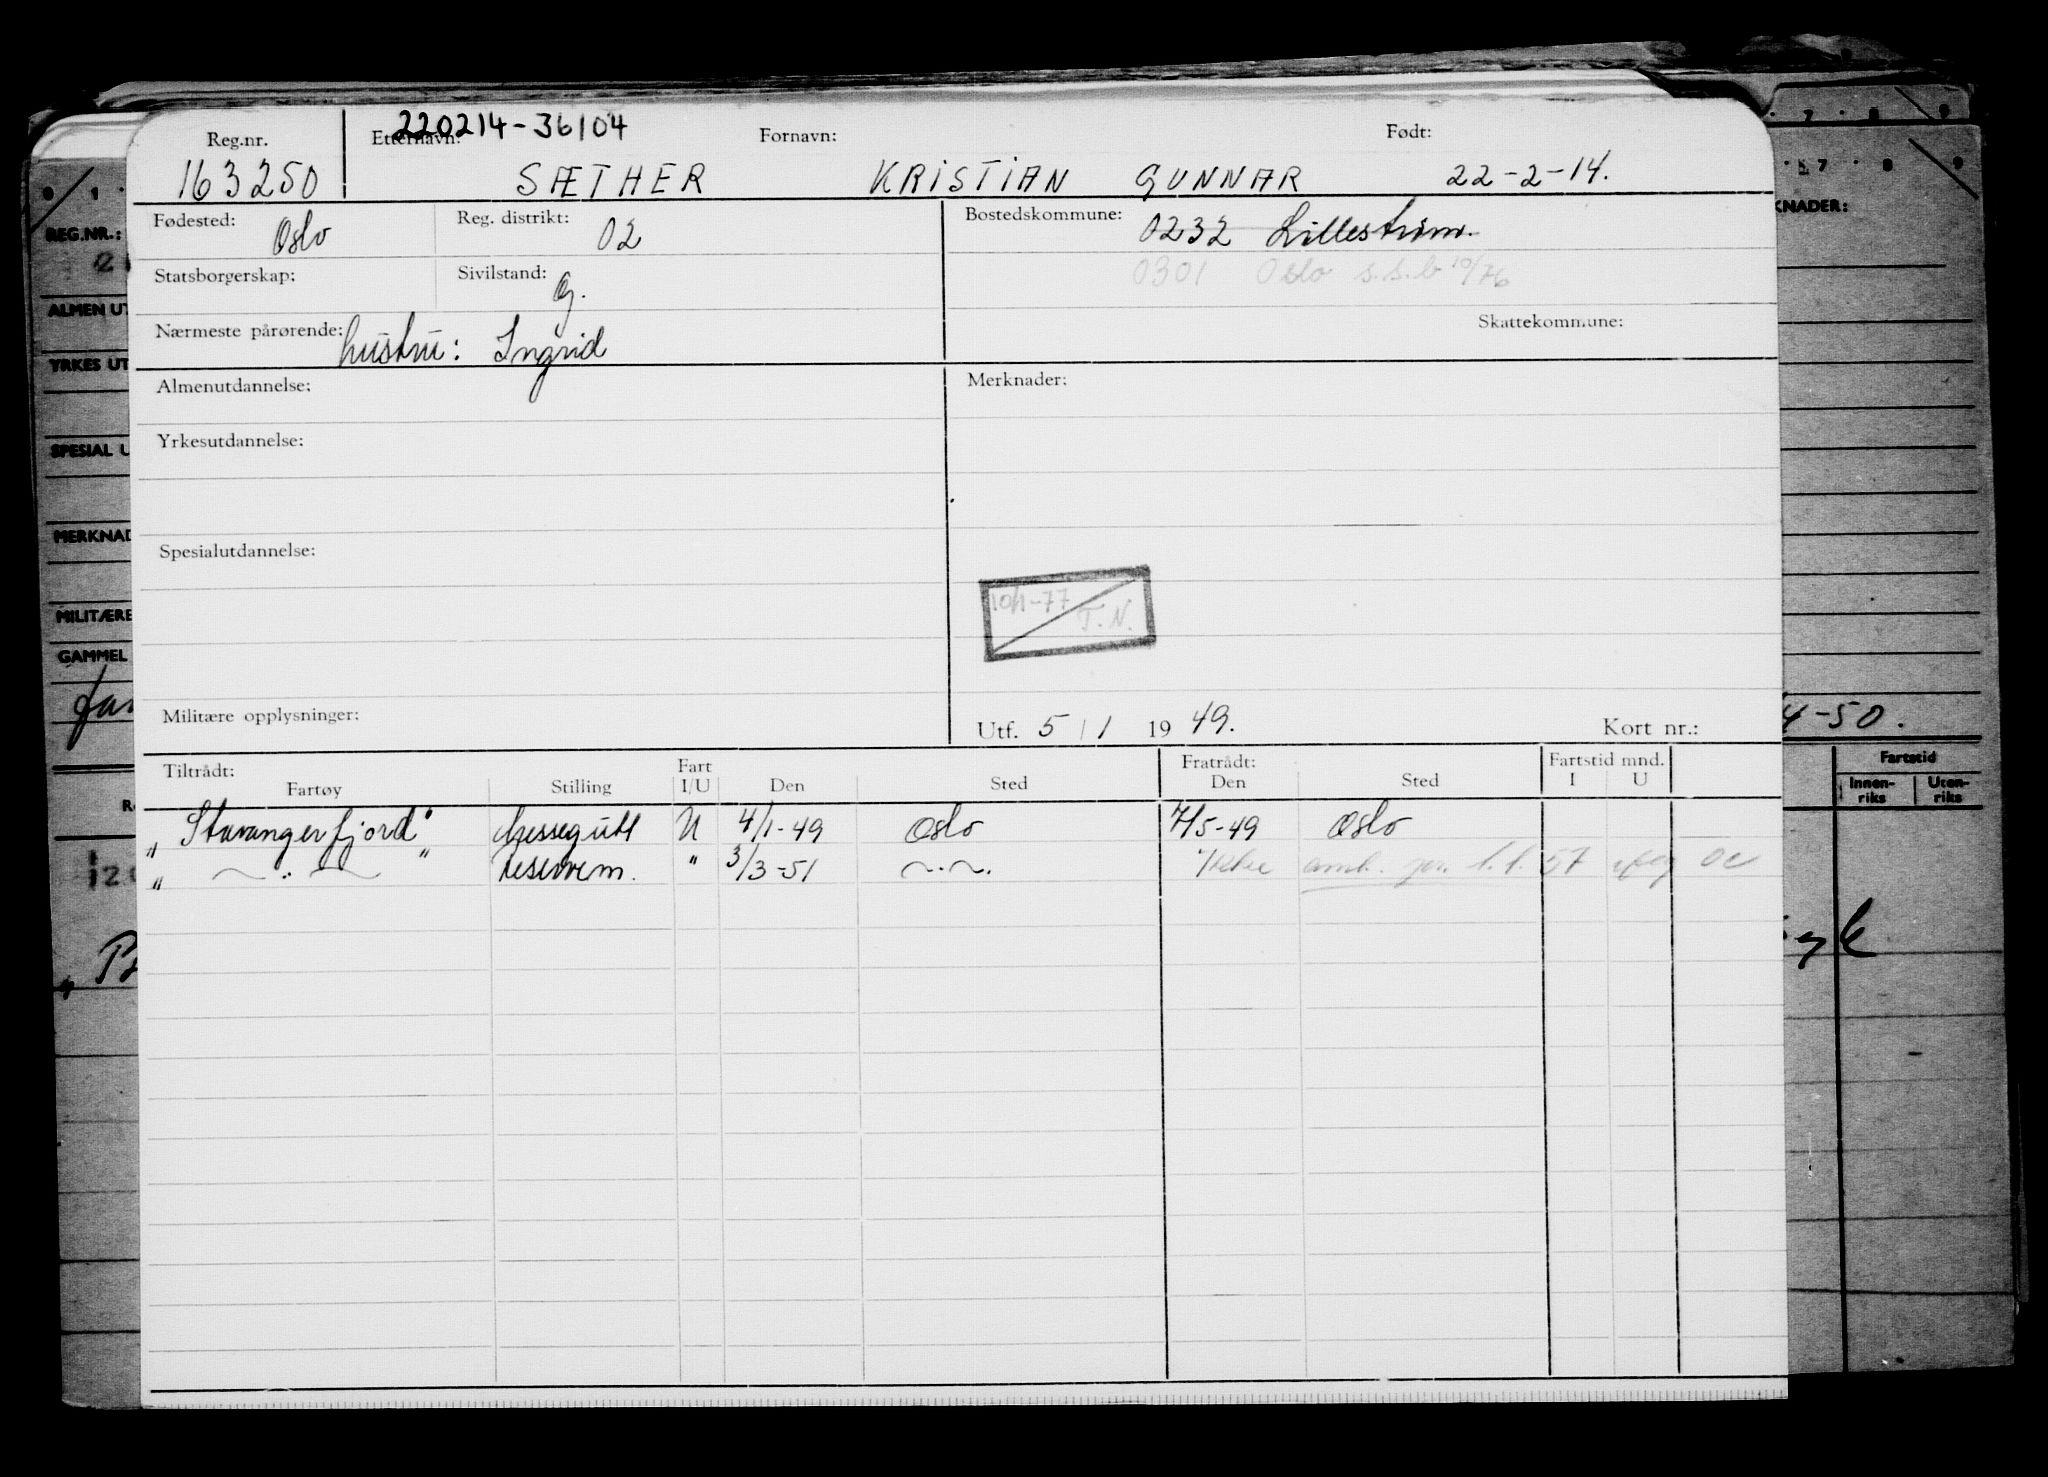 220214-36104
Reg.nr. Etternavn: Fornavn: Født:
163250 SÆTHER KRISTIAN GUNNAR 22-2-14.
Fødested: Oslo Reg. distrikt: 02 Bostedskommune: 0232 Lillestrøm.
0301 Oslo s.s.b 10/76
Statsborgerskap: Sivilstand: g.
Nærmeste pårørende: hustru: Ingrid Skattekommune:
Almenutdannelse: Merknader:
Yrkesutdannelse:
Spesialutdannelse:
10/1-77 T.N.
Militære opplysninger: Utf. 5/1 1949. Kort nr.:
Tiltrådt: Fart Fratrådt: Fartstid mnd.
Fartøy Stilling I/U Den Sted Den Sted I U
"Stavangerfjord" Messegutt U 4/1-49 Oslo 7/5-49 Oslo
" — " — " reservem. " 3/3-51 —"—. Ikke omb. pr. 1.1. 57
REG.NR.:
ALMEN UT
YRKES UT
SPESIAL U
MERKNAD
MILITÆRE
GAMMEL
KNADER:
7 8 9
0 1
7 8 9
4-50.
Fartstid
Innen-
riks
Uten-
riks